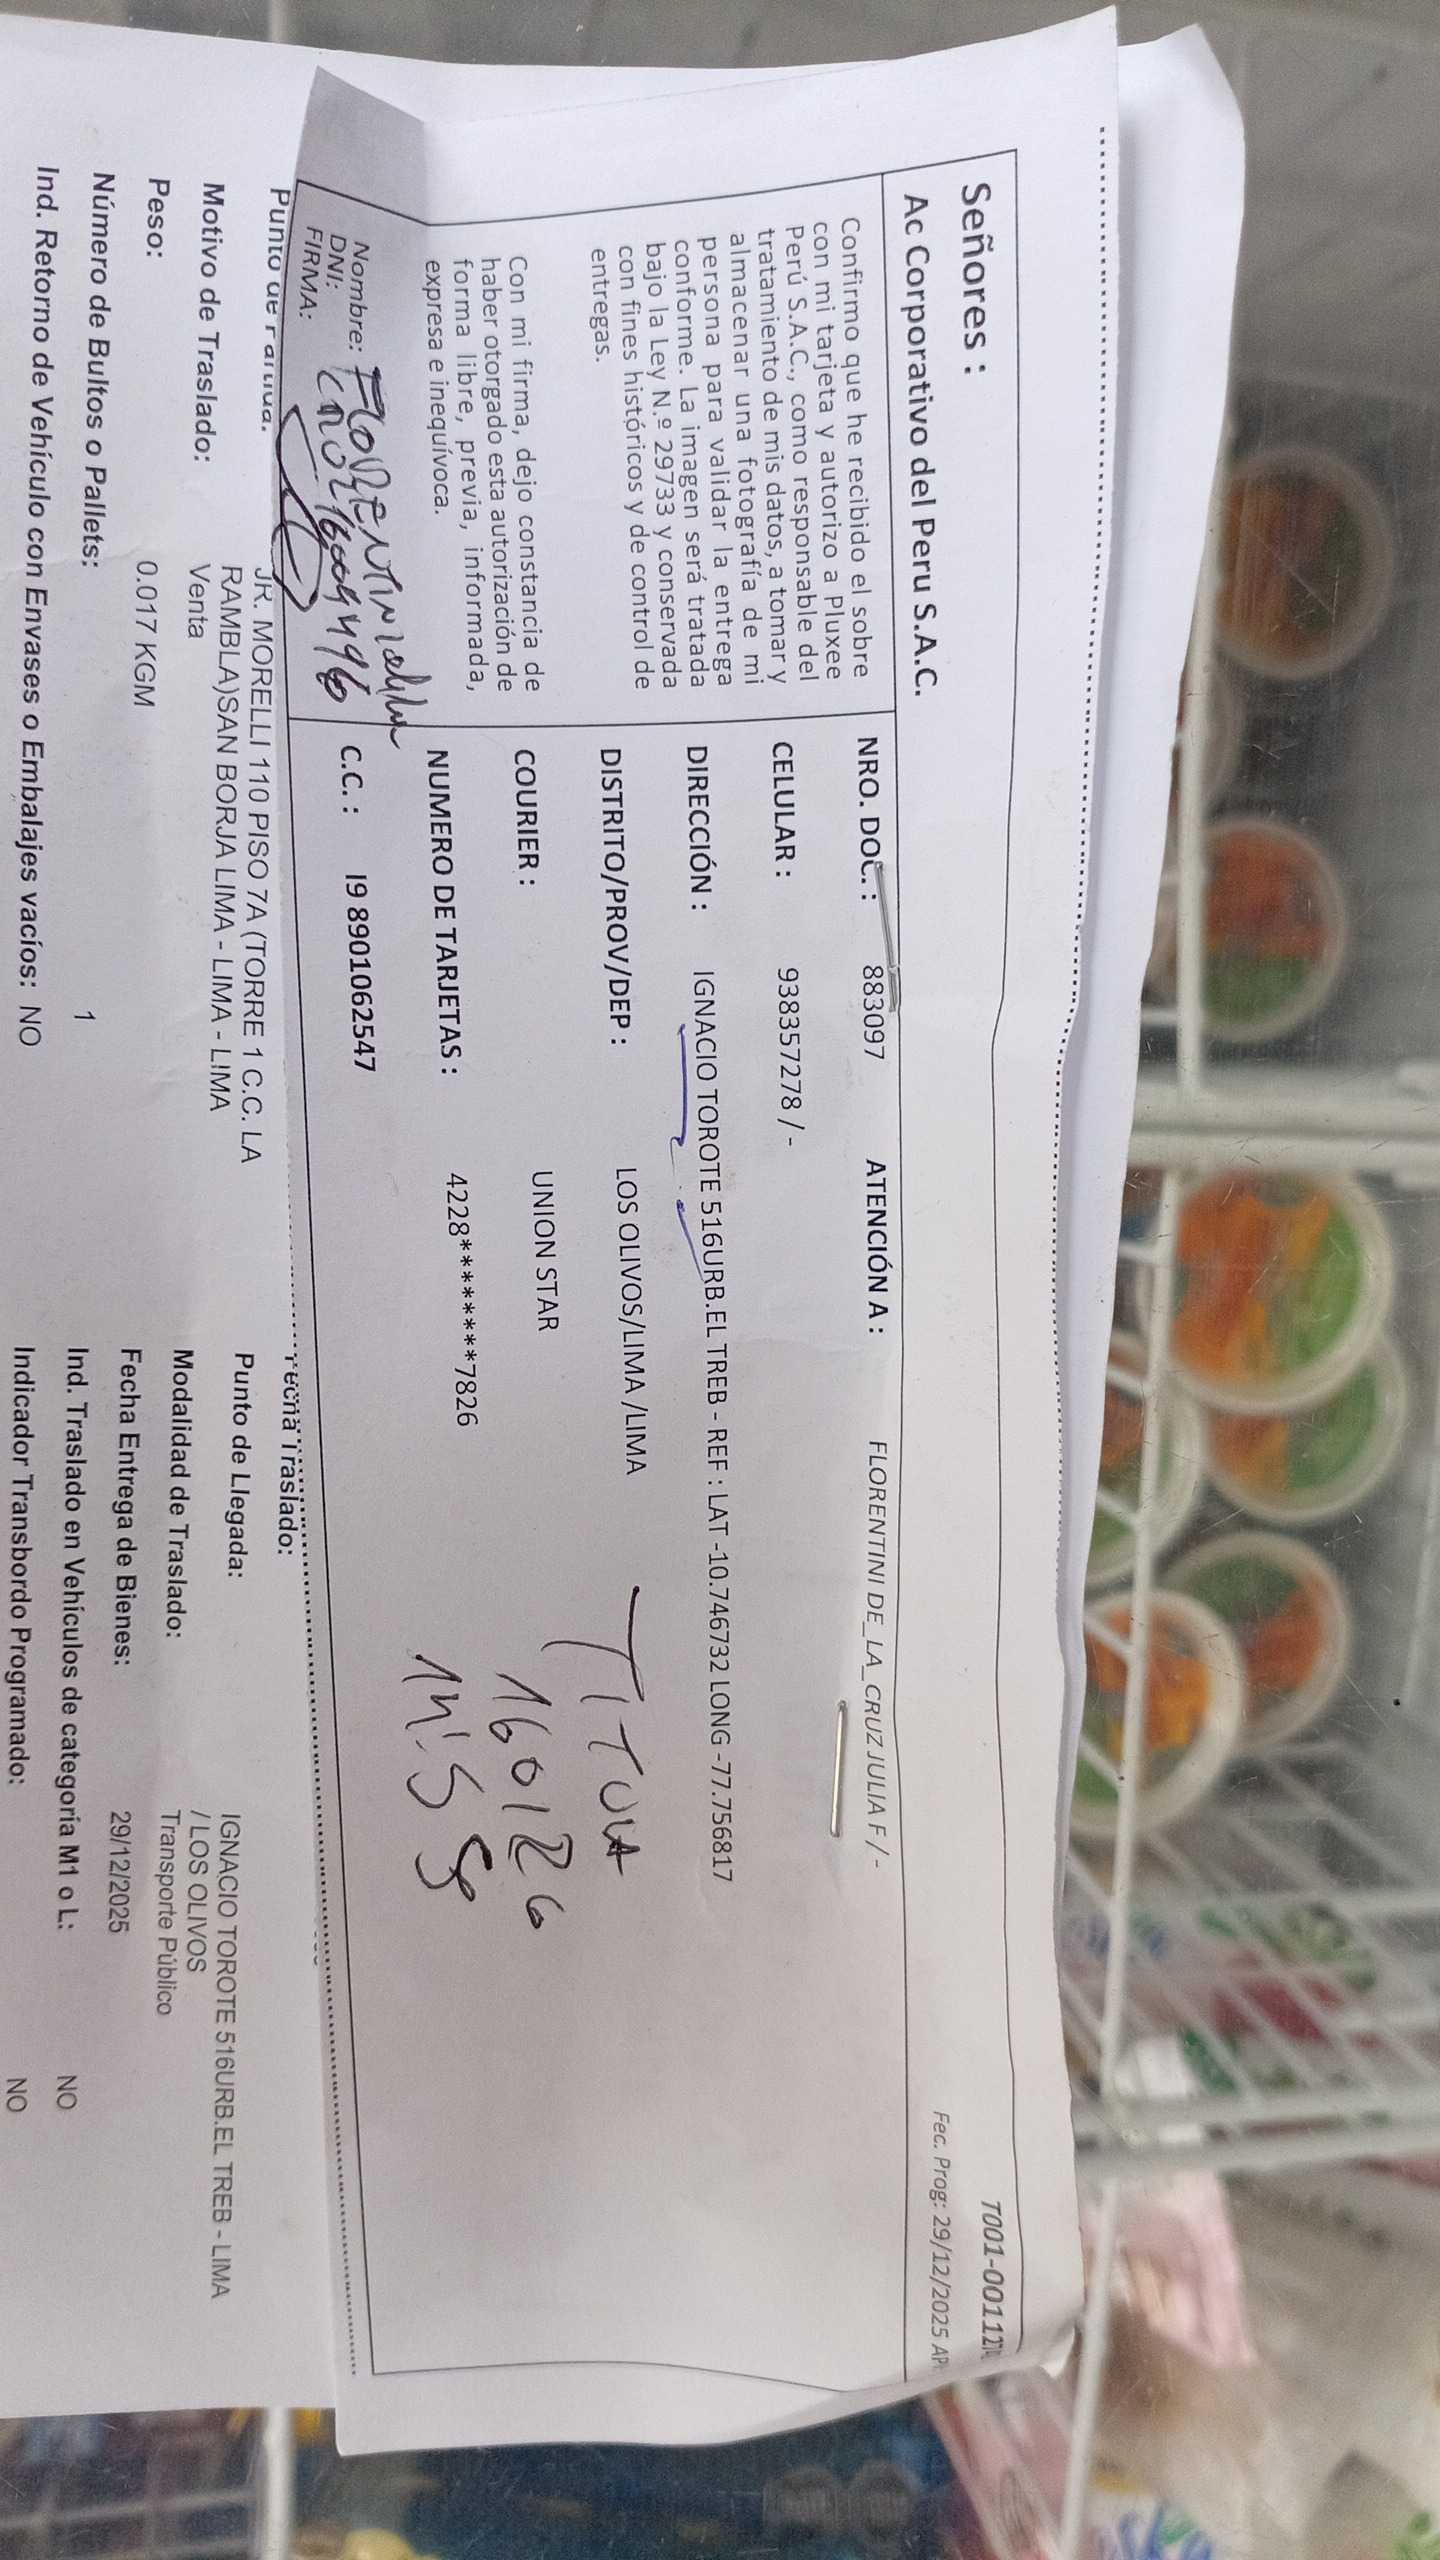 T001-00112
Señores :
Fec. Prog: 29/12/2025 AP
Ac Corporativo del Peru S.A.C.
Confirmo que he recibido el sobre
con mi tarjeta y autorizo a Pluxee
Perú S.A.C., como responsable del
tratamiento de mis datos, a tomar y
almacenar una fotografía de mi
persona para validar la entrega
conforme. La imagen será tratada
bajo la Ley N.º 29733 y conservada
con fines históricos y de control de
entregas.
Con mi firma, dejo constancia de
haber otorgado esta autorización de
forma libre, previa, informada,
expresa e inequívoca.
Nombre:
DNI:
FIRMA:
NRO. DOC. : 883097 ATENCIÓN A : FLORENTINI DE_LA_CRUZ JULIA F / -
CELULAR : 938357278 / -
DIRECCIÓN : IGNACIO TOROTE 516URB.EL TREB - REF : LAT -10.746732 LONG -77.756817
DISTRITO/PROV/DEP : LOS OLIVOS/LIMA /LIMA
COURIER : UNION STAR
NUMERO DE TARJETAS : 4228********7826
C.C. : I9 8901062547
TITULA
160126
Punto de Partida: JR. MORELLI 110 PISO 7A (TORRE 1 C.C. LA
RAMBLA)SAN BORJA LIMA - LIMA - LIMA
Motivo de Traslado: Venta
Peso: 0.017 KGM
Número de Bultos o Pallets: 1
Ind. Retorno de Vehículo con Envases o Embalajes vacíos: NO
Fecha Traslado:
Punto de Llegada: IGNACIO TOROTE 516URB.EL TREB - LIMA
/ LOS OLIVOS
Modalidad de Traslado: Transporte Público
Fecha Entrega de Bienes: 29/12/2025
Ind. Traslado en Vehículos de categoría M1 o L: NO
Indicador Transbordo Programado: NO